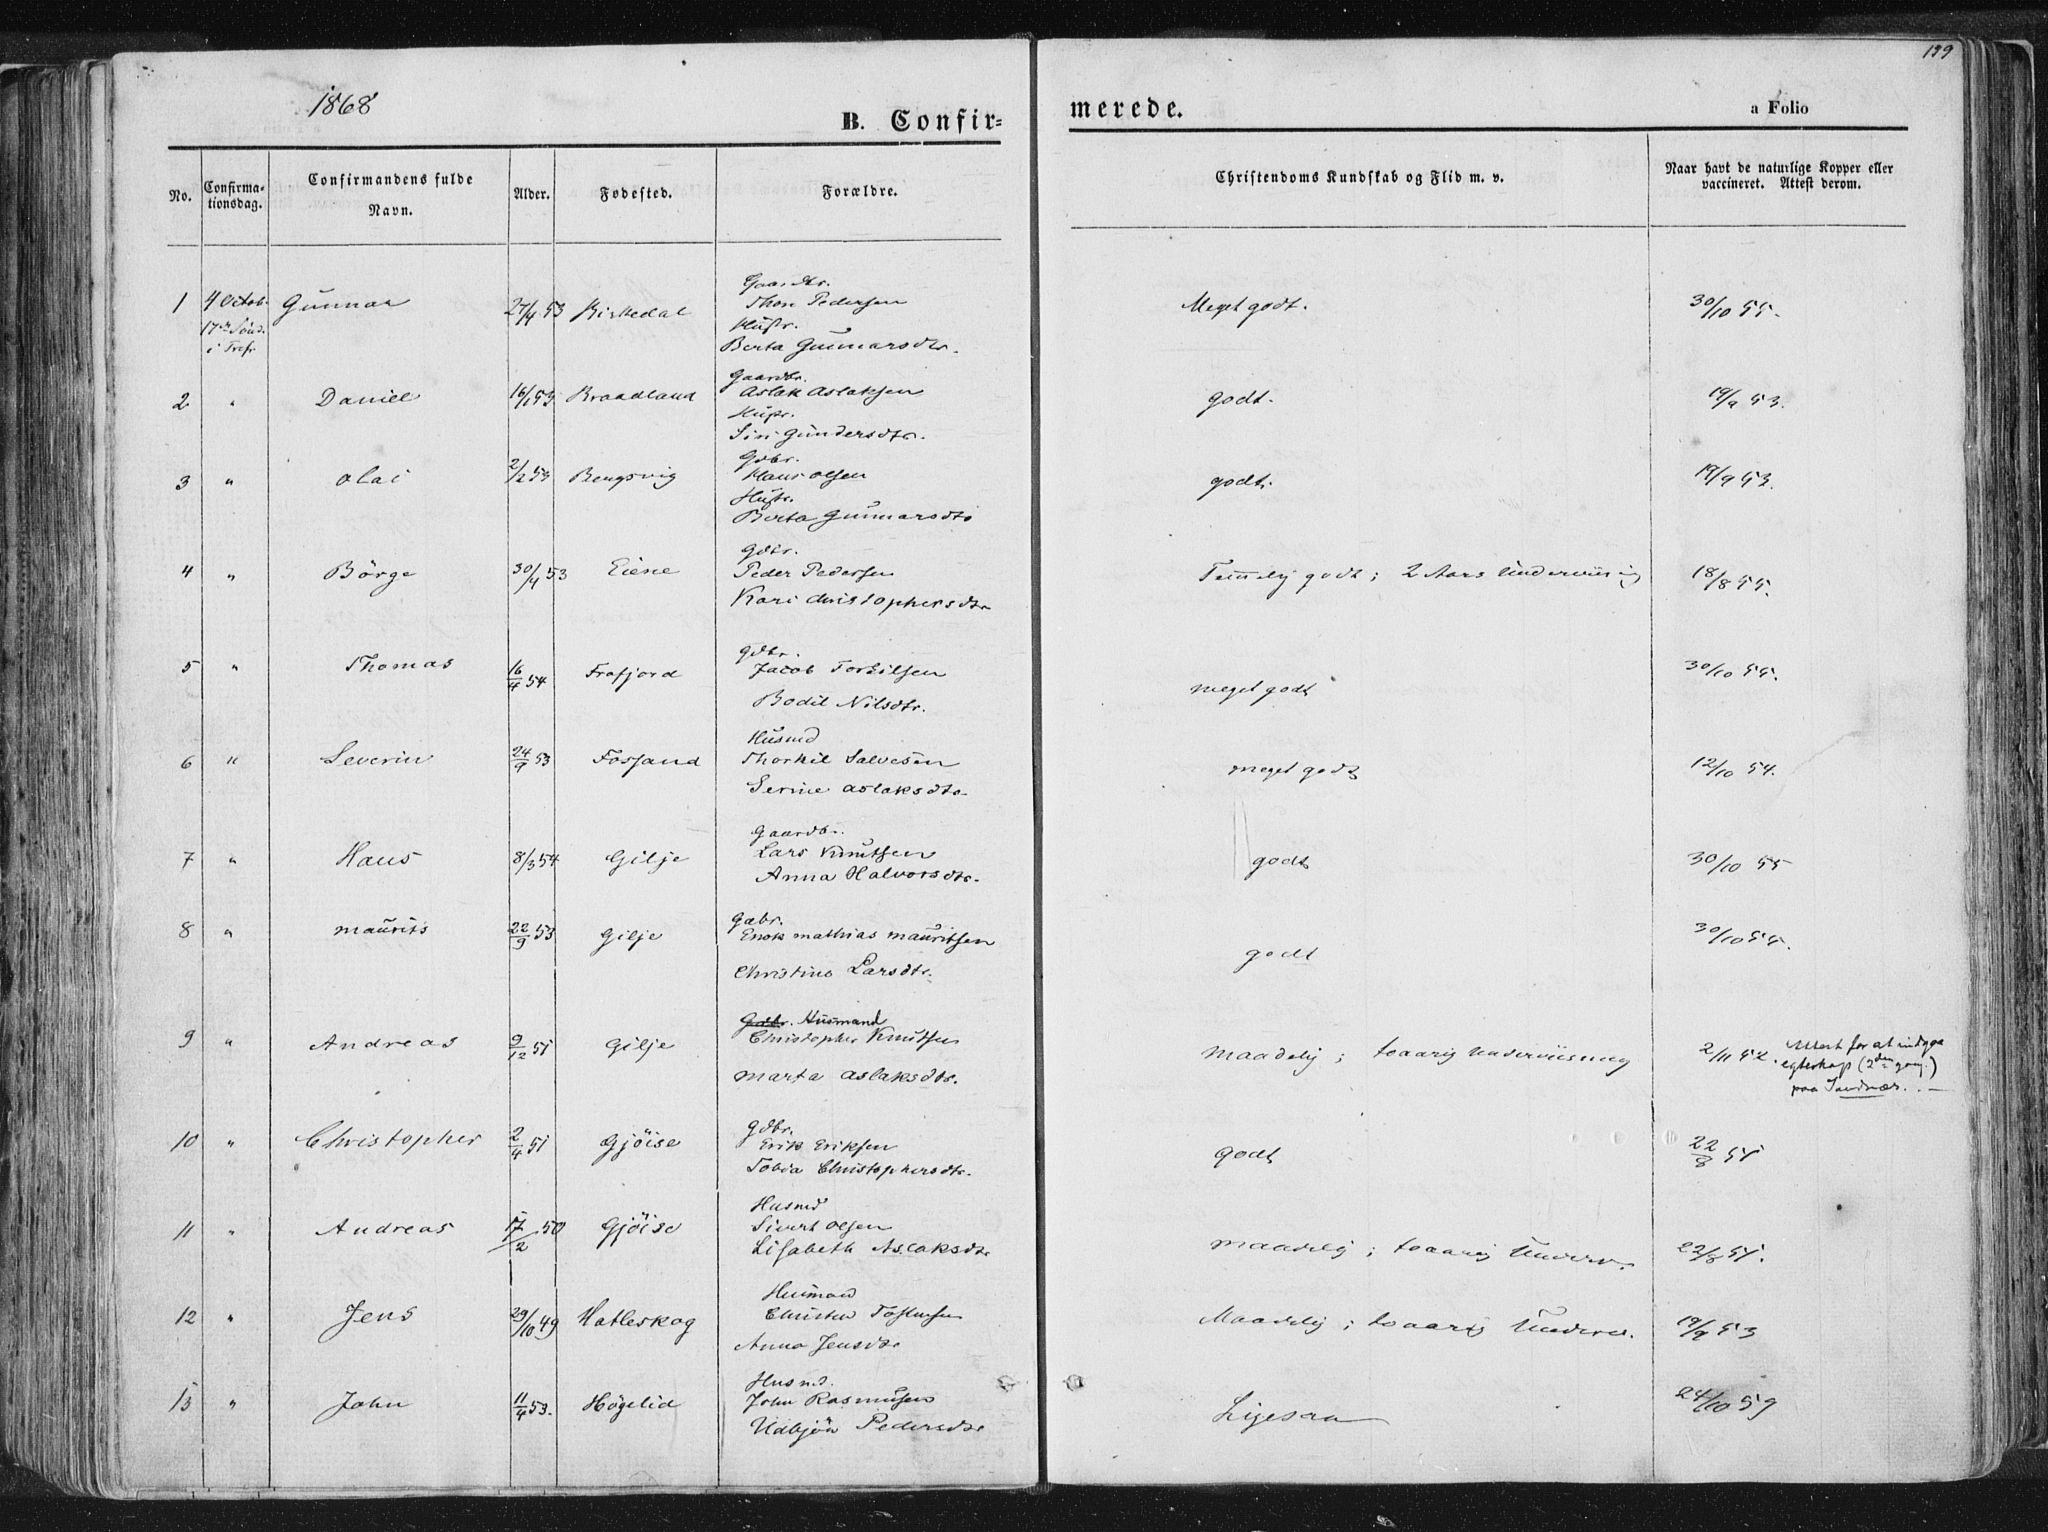 139
1868
B. Confir=
merede.
a Folio
No.
Confirma-
tionsdag.
Confirmandens fulde
Navn.
Alder.
Fødested.
Forældre.
Christendoms Kundskab og Flid m. v.
Naar havt de naturlige Kopper eller
vaccineret. Attest derom.
Gaardbr.
1 4 Octob. Gunnar 27/4 53 Birkedal Thore Pedersen Meget godt. 30/10 55.
17de Sönd. Hustr.
i Trefr Berta Gunnarsdtr.
Gaardbr.
2 " Daniel 16/1 53 Braadland Aslak Aslaksen godt. 19/9 53.
Hustr.
Siri Gundersdtr.
Gdbr.
3 " Olai 2/2 53 Bergsvig Hans Olsen godt. 19/9 53.
Hustr.
Berta Gunnarsdtr
Gdbr.
4 " Börge 30/4 53 Eiene Peder Pedersen Temelig godt; 2 Aars Underviisnig 18/8 55.
Kari Christophersdtr
Gdbr.
5 " Thomas 16/4 54 Frafjord Jacob Torkilsen meget godt 30/10 55.
Bodil Nilsdtr.
Husmd
6 " Severin 24/9 53 Fossand Thorkil Salvesen meget godt 12/10 54.
Serine Aslaksdtr.
Gaardbr.
7 " Hans 8/3 54 Gilje Lars Knutsen godt 30/10 55
Anna Halvorsdtr.
Gdbr.
8 " Maurits 22/9 53 Gilje Enok Mathias Mauritsen godt 30/10 55.
Christine Larsdtr.
Gdbr. Husmand
9 " Andreas 9/12 51 Gilje Christopher Knutsen Maadelig; toaarig Underviisning 2/11 52. Attest for at indgaa
egteskap (2den gang.)
Marta Aslaksdtr. paa Sandnæs.
Gdbr.
10 " Christopher 2/4 51 Gjöise Erik Eriksen godt 22/8 51
Tobia Christophersdtr.
Husmd
11 " Andreas 17/2 50 Gjöise Sivert Olsen maadelig; toaarig Underv. 22/8 51.
Lisabeth Aslaksdtr
Husmand
12 " Jens 29/10 49 Hatleskog Christen Tostensen Maadelig; toaarig Underv. 19/9 53
Anna Jensdtr
Husmd.
13 " John 11/4 53. Högelid John Rasmusen Ligesaa 24/10 59
Udbjör Pedersdtr